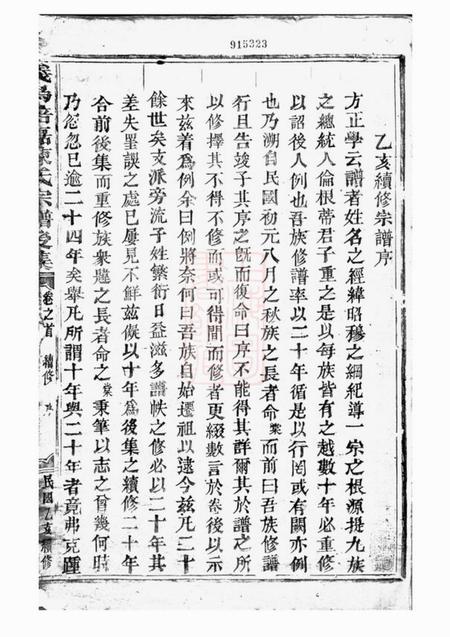 915323
乙亥續修宗譜序
方正學云譜者姓名之經緯昭穆之綱紀導一宗之根源提九族
之總統人倫根蒂君子重之是以每族皆有之越數十年必重修
以詔後人例也吾族修譜率以二十年循是以行罔或有闕亦例
也乃溯自民國初元八月之秋族之長者命業而前曰吾族修譜
行且告竣子其序之旣而復命曰序不能得其詳爾其於譜之所
以修擇其不得不修而或可得間而修者更綴數言於卷後以示
來茲着爲例余曰例將奈何曰吾族自始遷祖以迨今茲凡二十
餘世矣支派旁流子姓繁衍日益滋多譜帙之修必以二十年其
差失罣誤之處已屢見不鮮茲儗以十年爲後集之續修二十年
合前後集而重修族衆韙之長者命之業秉筆以志之曾幾何時
乃忽忽已逾二十四年矣舉凡所謂十年與二十年者竟弗克踐
義烏 陳氏宗譜 集
卷之首
續修
序
民國乙亥續修